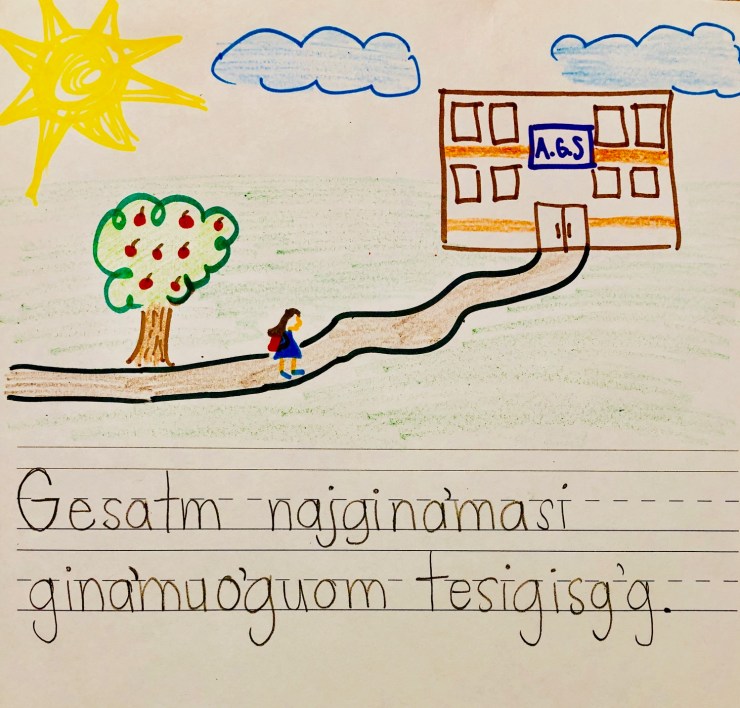 A.G.S
Gesatm najgina'masi
gina'muo'guom tesigisg'g.